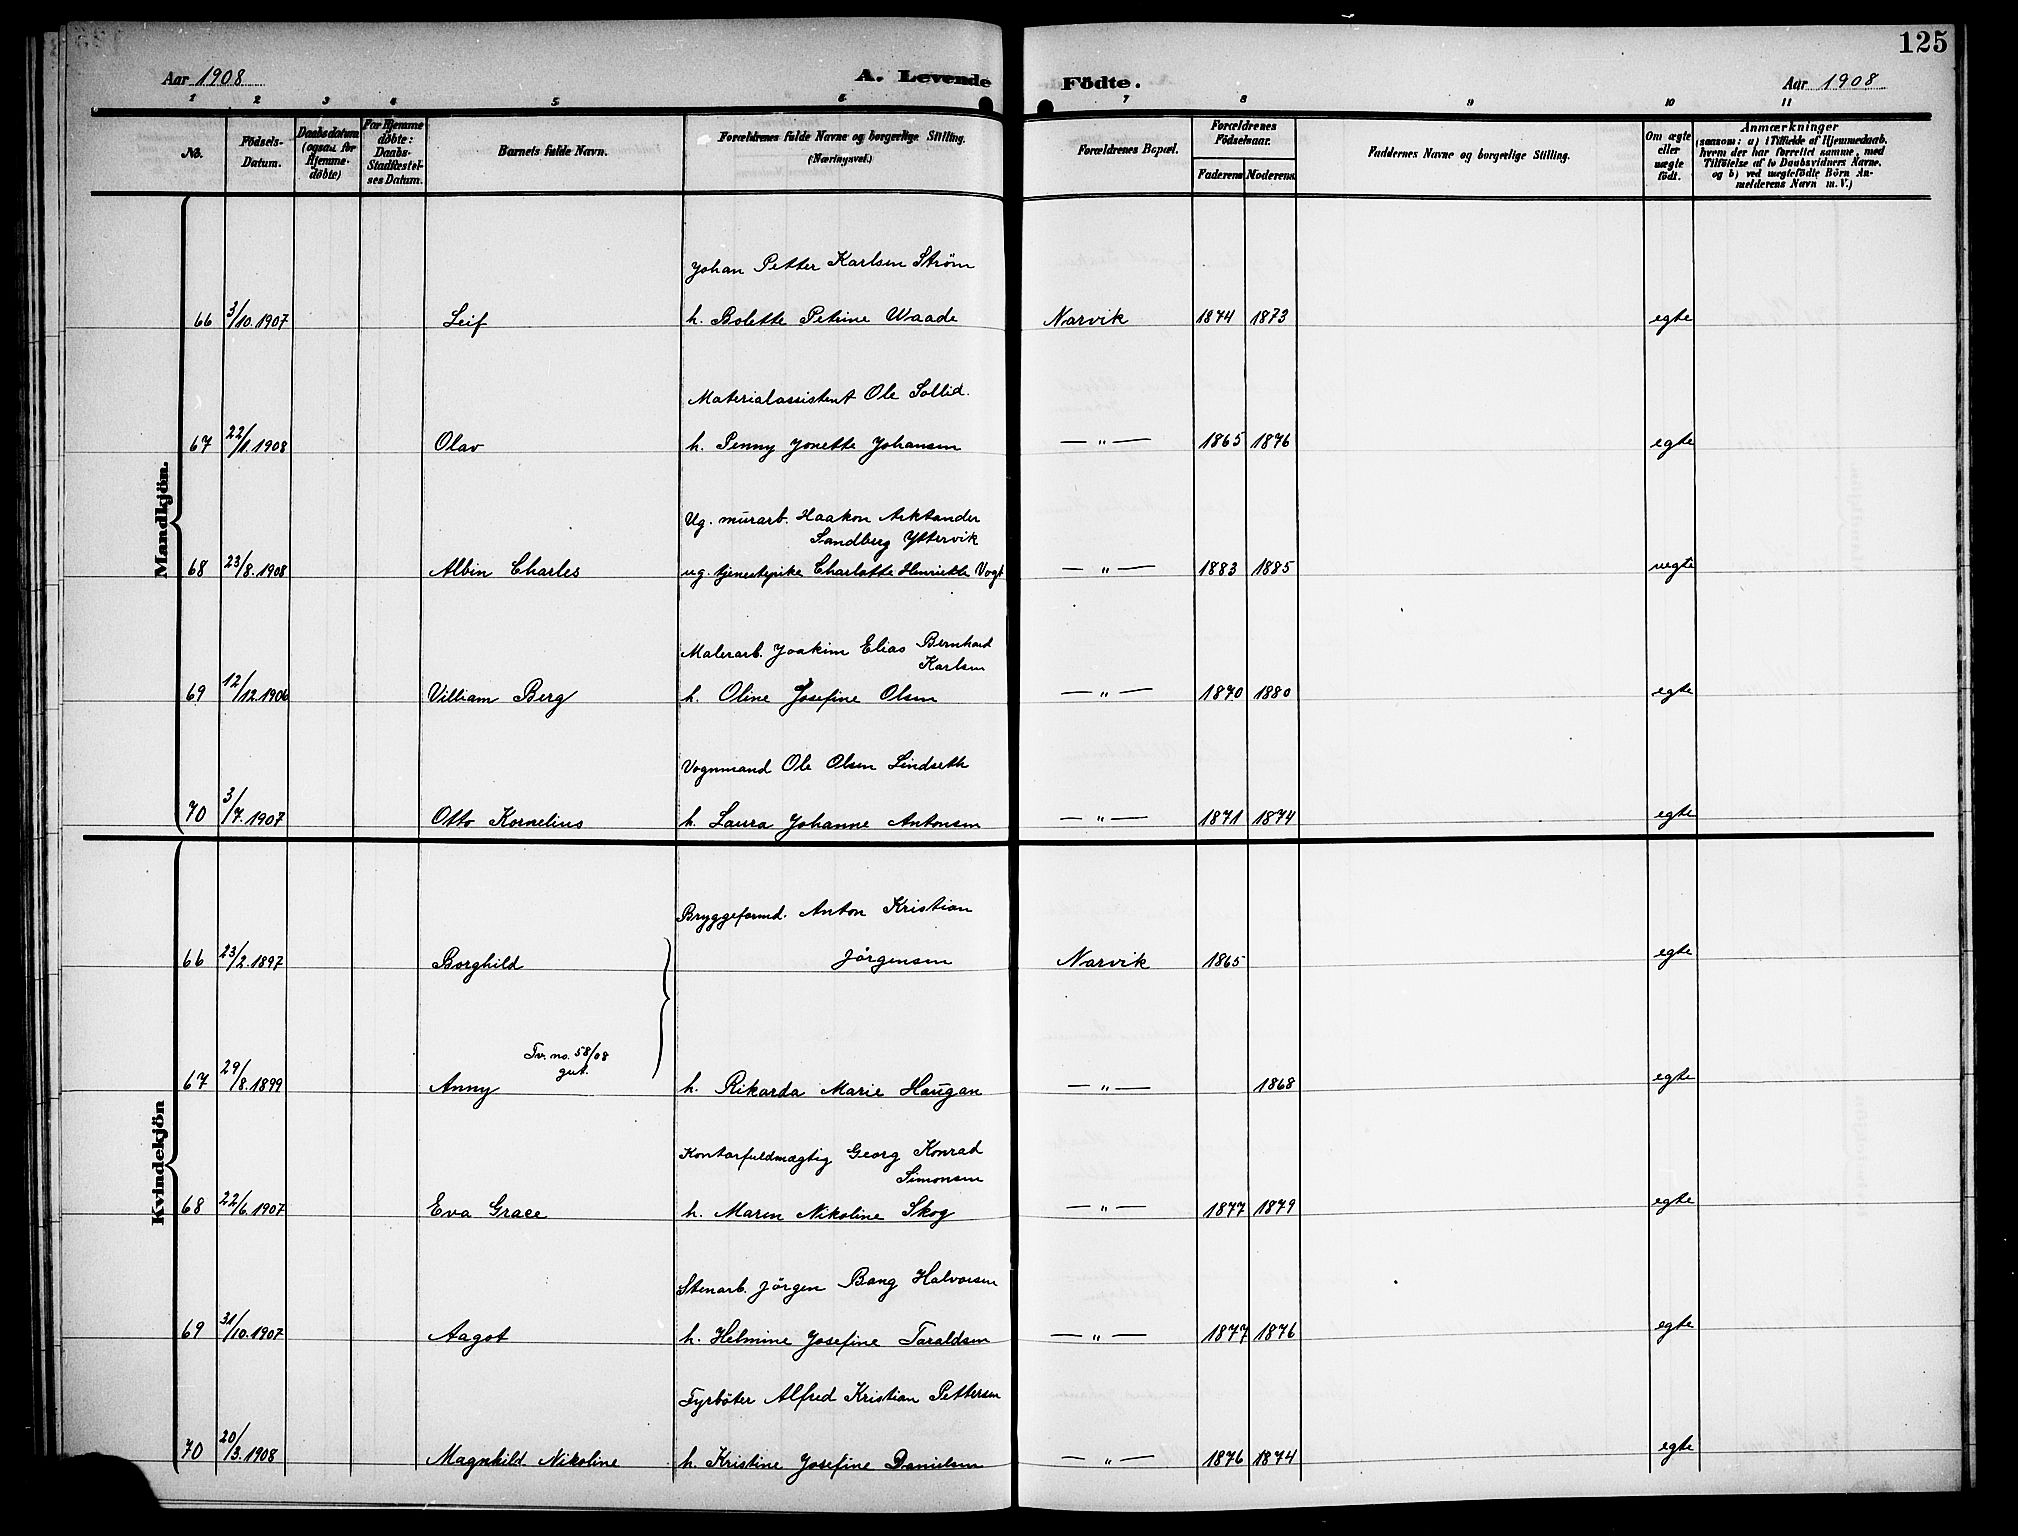 125
Aar 1908 A. Levende Födte. Aar 1908
1 2 3 4 5 6 7 8 9 10 11
No. Födsels-Datum. Daabsdatum (ogsaa for Hjemmedøbte) For Hjemmedøbte: Daabs-Stadfæstelses Datum. Barnets fulde Navn. Forældrenes fulde Navne og borgerlige Stilling. (Næringsvei.) Forældrenes Bopæl. Forældrenes Födselsaar. Faderens Moderens. Faddernes Navne og borgerlige Stilling. Om ægte eller uægte født. Anmærkninger (saasom: a) i Tilfælde af Hjemmedaab, hvem der har forrettet samme, med Tilføielse af to Daabsvidners Navne, og b) ved uægtefødte Börn Anmelderens Navn m. V.)
Mandkjön.
Johan Petter Karlsen Strøm
66 3/10.1907 Leif h. Bolette Petrine Waade Narvik 1874 1873 egte
Materialassistent Ole Sollid.
67 22/1.1908 Olav h. Penny Jonette Johansen — „ — 1865 1876 egte
Ug. murarb. Haakon Arktander
Sandberg Yttervik
68 23/8.1908 Albin Charles ug. tjenestepike Charlotte Henriette Vogt — „ — 1883 1885 uegte
Malerarb. Joakim Elias Bernhard
Karlsen
69 12/12.1906 Villiam Berg h. Oline Josefine Olsen — „ — 1870 1880 egte
Vognmand Ole Olsen Lindseth
70 3/7.1907 Otto Kornelius h. Laura Johanne Antonsen — „ — 1871 1874 egte
Kvindekjön
Bryggeformd. Anton Kristian
66 23/2.1897 Borghild Jørgensen Narvik 1865 egte
Tv. no. 58/08
gut.
67 29/8.1899 Anny h. Rikarda Marie Haugan — „ — 1868 egte
Kontorfuldmægtig Georg Konrad
Simonsen
68 22/6.1907 Eva Grace h. Maren Nikoline Skog — „ — 1877 1879 egte
Stenarb. Jørgen Bang Halvorsen
69 31/10.1907 Aagot h. Helmine Josefine Taraldsen — „ — 1877 1876 egte
Fyrbøter Alfred Kristian Pettersen
70 20/3.1908 Magnhild Nikoline h. Kristine Josefine Danielsen — „ — 1876 1874 egte